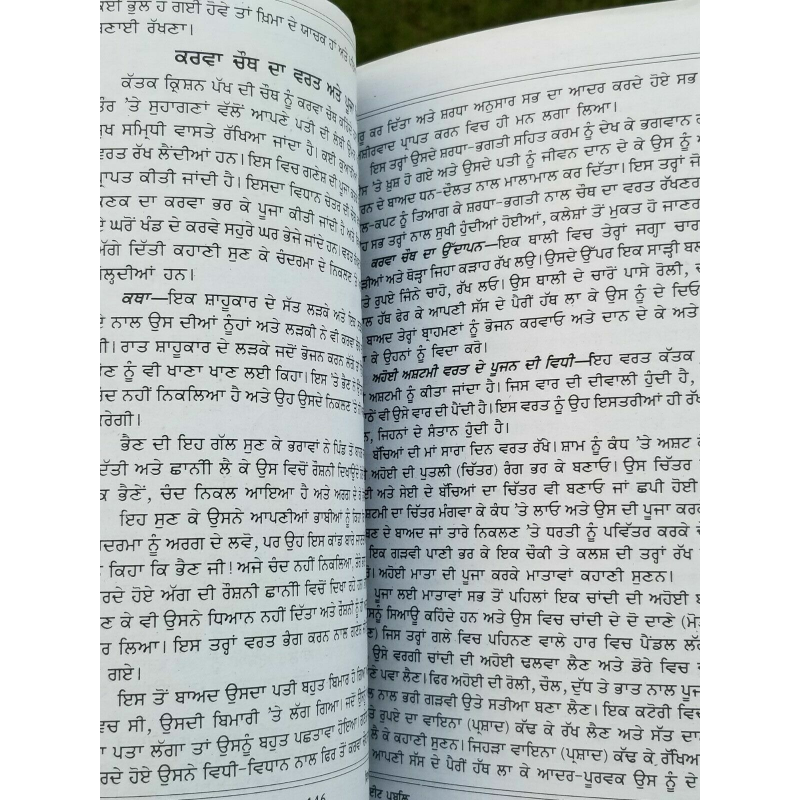 ਕਈ ਭੁਲ ਹੋ ਗਈ ਹੋਵੇ ਤਾਂ ਖ਼ਿਮਾ ਦੇ ਯਾਚਕ ਹਾਂ ਅਤੇ
ਬਣਾਈ ਰੱਖਣਾ।
ਕਰਵਾ ਚੌਥ ਦਾ ਵਰਤ ਅਤੇ ਪੂਜਾ
ਕੱਤਕ ਕ੍ਰਿਸ਼ਨ ਪੱਖ ਦੀ ਚੌਥ ਨੂੰ ਕਰਵਾ ਚੌਥ ਕਹਿੰਦੇ
ਤੌਰ 'ਤੇ ਸੁਹਾਗਣਾਂ ਵੱਲੋਂ ਆਪਣੇ ਪਤੀ ਦੀ ਲੰਬੀ
ਸੁਖ ਸਮ੍ਰਿਧੀ ਵਾਸਤੇ ਰੱਖਿਆ ਜਾਂਦਾ ਹੈ। ਕਈ
ਵਰਤ ਰੱਖ ਲੈਂਦੀਆਂ ਹਨ। ਇਸ ਵਿਚ ਗਣੇਸ਼ ਦੀ ਪੂਜਾ
ਪ੍ਰਾਪਤ ਕੀਤੀ ਜਾਂਦੀ ਹੈ। ਇਸਦਾ ਵਿਧਾਨ ਚੇਤਰ ਦੀ
ਕਣਕ ਦਾ ਕਰਵਾ ਭਰ ਕੇ ਪੂਜਾ ਕੀਤੀ ਜਾਂਦੀ ਹੈ ਅਤੇ
ਦੇ ਘਰੋਂ ਖੰਡ ਦੇ ਕਰਵੇ ਸਹੁਰੇ ਘਰ ਭੇਜੇ ਜਾਂਦੇ ਹਨ। ਵਰਤ
ਅੱਗੇ ਦਿੱਤੀ ਕਹਾਣੀ ਸੁਣ ਕੇ ਚੰਦਰਮਾ ਦੇ ਨਿਕਲਣ 'ਤੇ
ਖੋਲ੍ਹਦੀਆਂ ਹਨ।
ਕਥਾ—ਇਕ ਸ਼ਾਹੂਕਾਰ ਦੇ ਸੱਤ ਲੜਕੇ ਅਤੇ ਇਕ
ਦੇ ਨਾਲ ਉਸ ਦੀਆਂ ਨੂੰਹਾਂ ਅਤੇ ਲੜਕੀ ਨੇ ਵੀ ਕਰਵਾ
ਸੀ। ਰਾਤ ਸ਼ਾਹੂਕਾਰ ਦੇ ਲੜਕੇ ਜਦੋਂ ਭੋਜਨ ਕਰਨ ਲੱਗੇ ਤਾਂ
ਭੈਣ ਨੂੰ ਵੀ ਖਾਣਾ ਖਾਣ ਲਈ ਕਿਹਾ। ਇਸ 'ਤੇ ਭੈਣ ਨੇ
ਚੰਦ ਨਹੀਂ ਨਿਕਲਿਆ ਹੈ ਅਤੇ ਉਹ ਉਸਦੇ ਨਿਕਲਣ 'ਤੇ
ਕਰੇਗੀ।
ਭੈਣ ਦੀ ਇਹ ਗੱਲ ਸੁਣ ਕੇ ਭਰਾਵਾਂ ਨੇ ਪਿੰਡ ਤੋਂ
ਦਿੱਤੀ ਅਤੇ ਛਾਨਣੀ ਲੈ ਕੇ ਉਸ ਵਿਚੋਂ ਰੌਸ਼ਨੀ ਦਿਖਾਉਂਦੇ
ਕਿ ਭੈਣੇਂ, ਚੰਦ ਨਿਕਲ ਆਇਆ ਹੈ ਅਤੇ ਅਰਗ ਦੇ
ਇਹ ਸੁਣ ਕੇ ਉਸਨੇ ਆਪਣੀਆਂ ਭਾਬੀਆਂ ਨੂੰ ਕਿਹਾ
ਚੰਦਰਮਾ ਨੂੰ ਅਰਗ ਦੇ ਲਵੋ, ਪਰ ਉਹ ਇਸ ਕਾਂਡ ਬਾਰੇ
ਨੇ ਕਿਹਾ ਕਿ ਭੈਣ ਜੀ! ਅਜੇ ਚੰਦ ਨਹੀਂ ਨਿਕਲਿਆ, ਤੇਰੇ
ਕਰਦੇ ਹੋਏ ਅੱਗ ਦੀ ਰੌਸ਼ਨੀ ਛਾਨਣੀ ਵਿਚੋਂ ਦਿਖਾ ਰਹੇ ਹਨ।
ਸੁਣ ਕੇ ਵੀ ਉਸਨੇ ਧਿਆਨ ਨਹੀਂ ਦਿੱਤਾ ਅਤੇ ਰੌਸ਼ਨੀ ਨੂੰ ਹੀ
ਕਰ ਲਿਆ। ਇਸ ਤਰ੍ਹਾਂ ਵਰਤ ਭੰਗ ਕਰਨ ਨਾਲ ਗਣੇਸ਼
ਹੋ ਗਏ।
ਇਸ ਤੋਂ ਬਾਅਦ ਉਸਦਾ ਪਤੀ ਬਹੁਤ ਬਿਮਾਰ ਹੋ ਗਿਆ
ਵਿਚ ਸੀ, ਉਸਦੀ ਬਿਮਾਰੀ 'ਤੇ ਲੱਗ ਗਿਆ। ਜਦੋਂ ਉਸਨੂੰ
ਦਾ ਪਤਾ ਲੱਗਾ ਤਾਂ ਉਸਨੂੰ ਬਹੁਤ ਪਛਤਾਵਾ ਹੋਇਆ।
ਕਰਦੇ ਹੋਏ ਉਸਨੇ ਵਿਧੀ-ਵਿਧਾਨ ਨਾਲ ਫਿਰ ਤੋਂ ਕਰਵਾ
146
ਕਰ ਦਿੱਤਾ ਅਤੇ ਸ਼ਰਧਾ ਅਨੁਸਾਰ ਸਭ ਦਾ ਆਦਰ ਕਰਦੇ ਹੋਏ ਸਭ
ਅਸ਼ੀਰਵਾਦ ਪ੍ਰਾਪਤ ਕਰਨ ਵਿਚ ਹੀ ਮਨ ਲਗਾ ਲਿਆ।
ਇਸ ਤਰ੍ਹਾਂ ਉਸਦੇ ਸ਼ਰਧਾ-ਭਗਤੀ ਸਹਿਤ ਕਰਮ ਨੂੰ ਦੇਖ ਕੇ ਭਗਵਾਨ
ਉਸ 'ਤੇ ਖ਼ੁਸ਼ ਹੋ ਗਏ ਅਤੇ ਉਸਦੇ ਪਤੀ ਨੂੰ ਜੀਵਨ ਦਾਨ ਦੇ ਕੇ ਉਸ ਨੂੰ
ਕਰਨ ਦੇ ਬਾਅਦ ਧਨ-ਦੌਲਤ ਨਾਲ ਮਾਲਾਮਾਲ ਕਰ ਦਿੱਤਾ। ਇਸ ਤਰ੍ਹਾਂ ਜੋ
ਛਲ-ਕਪਟ ਨੂੰ ਤਿਆਗ ਕੇ ਸ਼ਰਧਾ-ਭਗਤੀ ਨਾਲ ਚੌਥ ਦਾ ਵਰਤ ਰੱਖਣਗ
ਉਹ ਸਭ ਤਰ੍ਹਾਂ ਨਾਲ ਸੁਖੀ ਹੁੰਦੀਆਂ ਹੋਈਆਂ, ਕਲੇਸ਼ਾਂ ਤੋਂ ਮੁਕਤ ਹੋ ਜਾਣਗ
ਕਰਵਾ ਚੌਥ ਦਾ ਉੱਦਾਪਨ—ਇਕ ਥਾਲੀ ਵਿਚ ਤੇਰ੍ਹਾਂ ਜਗ੍ਹਾ ਚਾਰ
ਪੂੜੀਆਂ ਅਤੇ ਥੋੜ੍ਹਾ ਜਿਹਾ ਕੜਾਹ ਰੱਖ ਲਉ। ਉਸਦੇ ਉੱਪਰ ਇਕ ਸਾੜ੍ਹੀ
ਅਤੇ ਰੁਪਏ ਜਿੰਨੇ ਚਾਹੋ, ਰੱਖ ਲਓ। ਉਸ ਥਾਲੀ ਦੇ ਚਾਰੋਂ ਪਾਸੇ ਰੋਲੀ,
ਨਾਲ ਹੱਥ ਫੇਰ ਕੇ ਆਪਣੀ ਸੱਸ ਦੇ ਪੈਰੀਂ ਹੱਥ ਲਾ ਕੇ ਉਸ ਨੂੰ ਦੇ ਦਿਓ
ਬਾਅਦ ਤੇਰ੍ਹਾਂ ਬ੍ਰਾਹਮਣਾਂ ਨੂੰ ਭੋਜਨ ਕਰਵਾਓ ਅਤੇ ਦਾਨ ਦੇ ਕੇ ਅਤੇ
ਕੇ ਉਹਨਾਂ ਨੂੰ ਵਿਦਾ ਕਰੋ।
ਅਹੋਈ ਅਸ਼ਟਮੀ ਵਰਤ ਦੇ ਪੂਜਨ ਦੀ ਵਿਧੀ—ਇਹ ਵਰਤ ਕੱਤਕ
ਅਸ਼ਟਮੀ ਨੂੰ ਕੀਤਾ ਜਾਂਦਾ ਹੈ। ਜਿਸ ਵਾਰ ਦੀ ਦੀਵਾਲੀ ਹੁੰਦੀ ਹੈ,
ਅਠੋਂ ਵੀ ਉਸੇ ਵਾਰ ਦੀ ਪੈਂਦੀ ਹੈ। ਇਸ ਵਰਤ ਨੂੰ ਉਹ ਇਸਤਰੀਆਂ ਹੀ
ਹਨ, ਜਿਹਨਾਂ ਦੇ ਸੰਤਾਨ ਹੁੰਦੀ ਹੈ।
ਬੱਚਿਆਂ ਦੀ ਮਾਂ ਸਾਰਾ ਦਿਨ ਵਰਤ ਰੱਖੇ। ਸ਼ਾਮ ਨੂੰ ਕੰਧ 'ਤੇ ਅਸ਼ਟ
ਅਹੋਈ ਦੀ ਪੁਤਲੀ (ਚਿੱਤਰ) ਰੰਗ ਭਰ ਕੇ ਬਣਾਓ। ਉਸ ਚਿੱਤਰ
ਅਤੇ ਸੇਈ ਦੇ ਬੱਚਿਆਂ ਦਾ ਚਿੱਤਰ ਵੀ ਬਣਾਓ ਜਾਂ ਛਪੀ ਹੋਈ
ਅਸ਼ਟਮੀ ਦਾ ਚਿੱਤਰ ਮੰਗਵਾ ਕੇ ਕੰਧ 'ਤੇ ਲਾਓ ਅਤੇ ਉਸ ਦੀ ਪੂਜਾ ਕਰ
ਦੇ ਬਾਅਦ ਜਾਂ ਤਾਰੇ ਨਿਕਲਣ 'ਤੇ ਧਰਤੀ ਨੂੰ ਪਵਿੱਤਰ ਕਰਕੇ
ਇਕ ਗੜਵੀ ਪਾਣੀ ਭਰ ਕੇ ਇਕ ਚੌਕੀ ਤੇ ਕਲਸ਼ ਦੀ ਤਰ੍ਹਾਂ ਰੱਖ
ਅਹੋਈ ਮਾਤਾ ਦੀ ਪੂਜਾ ਕਰਕੇ ਮਾਤਾਵਾਂ ਕਹਾਣੀ ਸੁਣਨ।
ਪੂਜਾ ਲਈ ਮਾਤਾਵਾਂ ਸਭ ਤੋਂ ਪਹਿਲਾਂ ਇਕ ਚਾਂਦੀ ਦੀ ਅਹੋਈ
ਜਿਸਨੂੰ ਸਿਆਊ ਕਹਿੰਦੇ ਹਨ ਅਤੇ ਉਸ ਵਿਚ ਚਾਂਦੀ ਦੇ ਦੋ ਦਾਣੇ
ਜਿਸ ਤਰ੍ਹਾਂ ਗਲੇ ਵਿਚ ਪਹਿਨਣ ਵਾਲੇ ਹਾਰ ਵਿਚ ਪੈਂਡਲ
ਉਸੇ ਵਰਗੀ ਚਾਂਦੀ ਦੀ ਅਹੋਈ ਢਲਵਾ ਲੈਣ ਅਤੇ ਡੋਰੇ ਵਿਚ
ਪਵਾ ਲੈਣ। ਫਿਰ ਅਹੋਈ ਦੀ ਰੋਲੀ, ਚੌਲ, ਦੁੱਧ ਤੇ ਭਾਤ ਨਾਲ
ਨਾਲ ਭਰੀ ਗੜਵੀ ਉਤੇ ਸਤੀਆ ਬਣਾ ਲੈਣ। ਇਕ ਕਟੋਰੀ ਵਿਚ
ਰੁਪਏ ਦਾ ਵਾਇਨਾ (ਪ੍ਰਸ਼ਾਦ) ਕੱਢ ਕੇ ਰੱਖ ਲੈਣ ਅਤੇ ਸੱਤ ਦਾ
ਲੈ ਕੇ ਕਹਾਣੀ ਸੁਣਨ। ਜਿਹੜਾ ਵਾਇਨਾ (ਪ੍ਰਸ਼ਾਦ) ਕੱਢ ਕੇ ਰੱਖਿਆ
ਆਪਣੀ ਸੱਸ ਦੇ ਪੈਰੀਂ ਹੱਥ ਲਾ ਕੇ ਆਦਰ-ਪੂਰਵਕ ਉਸ ਨੂੰ ਦੇ